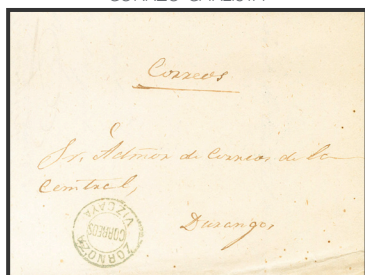 CORREO CARLISTA
Correos
Sr. Admor de Correos de la
Central,
Durango
ZORNOZA
CORREOS
VIZCAYA